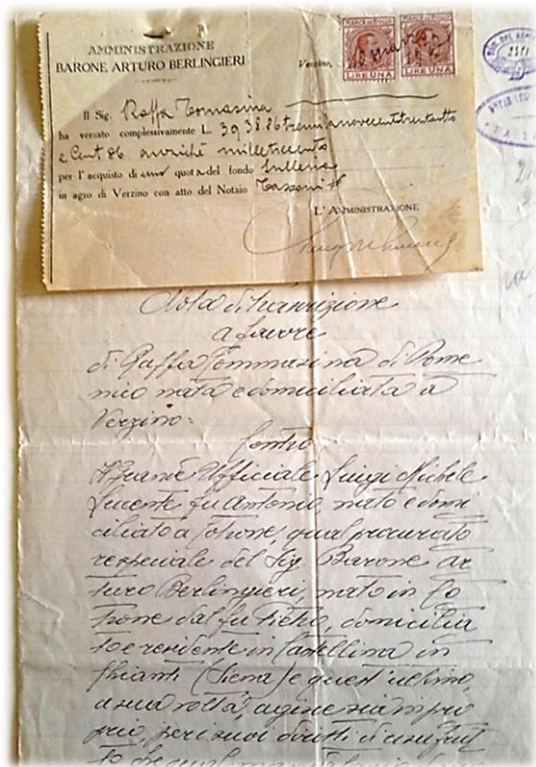 AMMINISTRAZIONE
BARONE ARTURO BERLINGIERI
Verzino,
MARCA DA BOLLO
LIRE UNA
MARCA DA BOLLO
LIRE UNA
Il Sig. Raffa Tomasina
ha versato complessivamente L. 3938.86 tremilanovecentotrentotto
e Cent 86 anziché milletrecento
per l'acquisto di una quota del fondo Sulleria
in agro di Verzino con atto del Notaio Tassoni
L'AMMINISTRAZIONE
Nota di trascrizione
a favore
di Raffa Tommasina di Dome
nico nata e domiciliata a
Verzino=
Contro
Il Grande Ufficiale Luigi Michele
Lucente fu Antonio, nato e domi
ciliato a Cotrone, qual procurato
re speciale del Sig. Barone Ar
turo Berlingieri, nato in Co
trone dal fu Pietro, domicilia
to e residente in Castellina in
Chianti (Siena) e quest'ultimo,
a sua volta, agisce sia in pro
prio, per i suoi diritti di usufrut